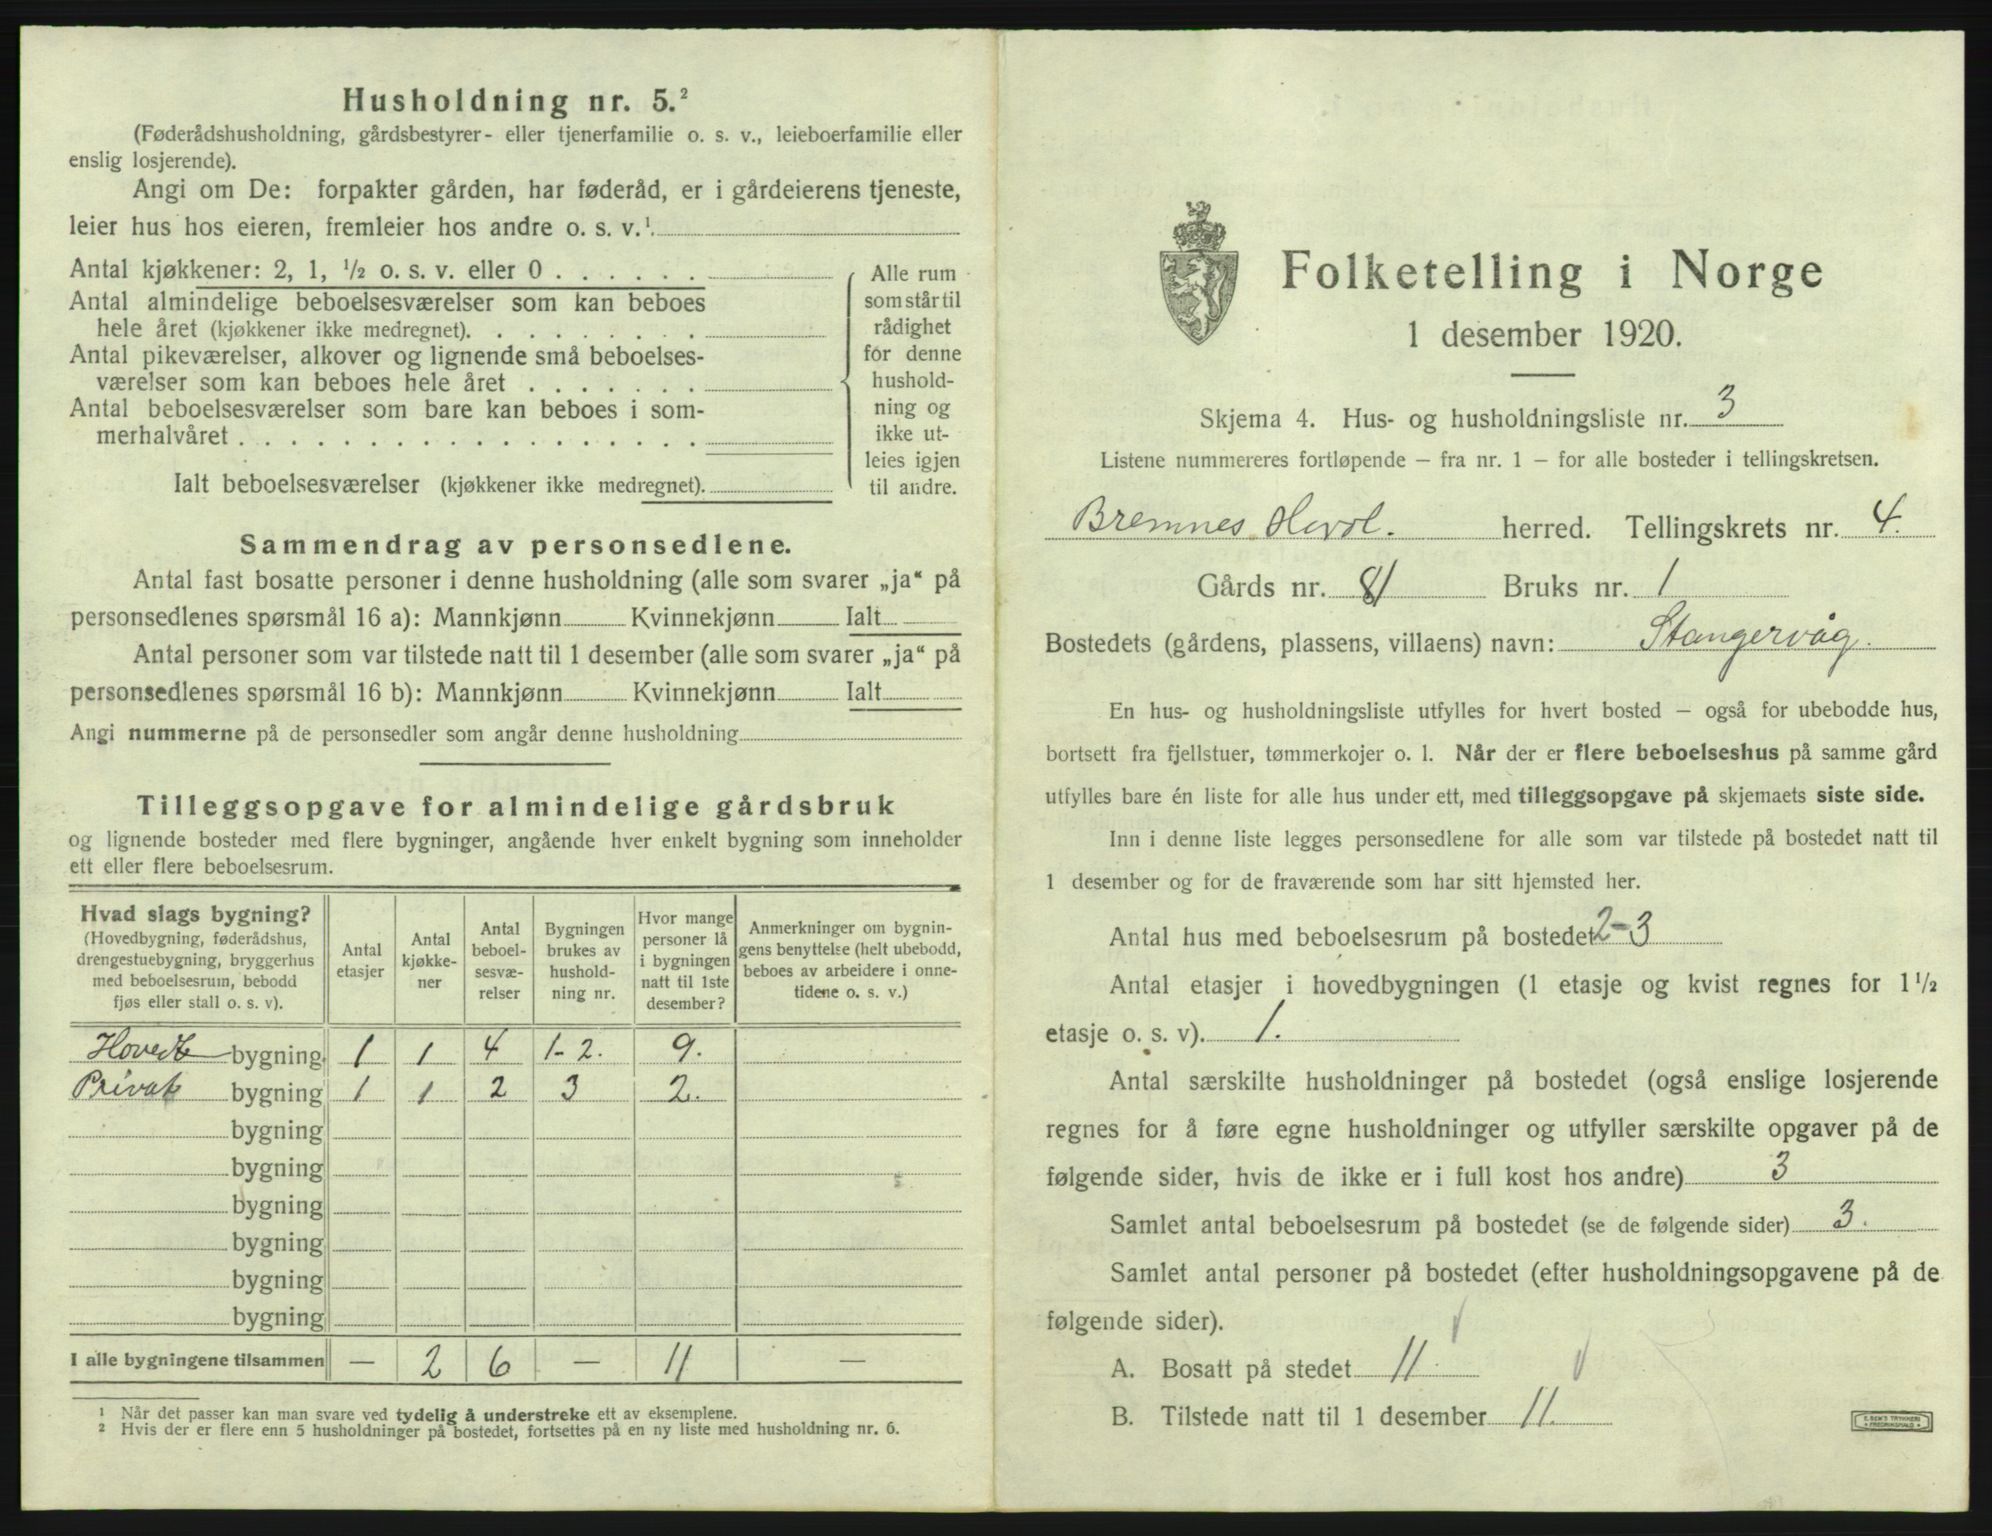 Husholdning nr. 5.²
(Føderådshusholdning, gårdsbestyrer- eller tjenerfamilie o. s. v., leieboerfamilie eller
enslig losjerende).
Angi om De: forpakter gården, har føderåd, er i gårdeierens tjeneste,
leier hus hos eieren, fremleier hos andre o. s. v.¹
Antal kjøkkener: 2, 1, ½ o. s. v. eller 0 . . . . . .
Antal almindelige beboelsesværelser som kan beboes
hele året (kjøkkener ikke medregnet). . . . . . . . .
Antal pikeværelser, alkover og lignende små beboelses-
værelser som kan beboes hele året . . . . . . .
Antal beboelsesværelser som bare kan beboes i som-
merhalvåret . . . . . . . . . . . . . . . . . .
Ialt beboelsesværelser (kjøkkener ikke medregnet).
Alle rum
som står til
rådighet
for denne
hushold-
ning og
ikke ut-
leies igjen
til andre.
Sammendrag av personsedlene.
Antal fast bosatte personer i denne husholdning (alle som svarer „ja“ på
personsedlenes spørsmål 16 a): Mannkjønn Kvinnekjønn Ialt
Antal personer som var tilstede natt til 1 desember (alle som svarer „ja“ på
personsedlenes spørsmål 16 b): Mannkjønn Kvinnekjønn Ialt
Angi nummerne på de personsedler som angår denne husholdning
Tilleggsopgave for almindelige gårdsbruk
og lignende bosteder med flere bygninger, angående hver enkelt bygning som inneholder
ett eller flere beboelsesrum.
Hvad slags bygning?
(Hovedbygning, føderådshus,
drengestuebygning, bryggerhus
med beboelsesrum, bebodd
fjøs eller stall o. s. v).
Antal
etasjer
Antal
kjøkke-
ner
Antal
beboel-
sesvæ-
relser
Bygningen
brukes av
hushold-
ning nr.
Hvor mange
personer lå
i bygningen
natt til 1ste
desember?
Anmerkninger om bygnin-
gens benyttelse (helt ubebodd,
beboes av arbeidere i onne-
tidene o. s. v.)
Hovedbygning. 1 1 4 1-2. 9.
Privat bygning 1 1 2 3 2.
bygning
bygning
bygning
bygning
bygning
bygning
I alle bygningene tilsammen — 2 6 — 11 —
¹ Når det passer kan man svare ved tydelig å understreke ett av eksemplene.
² Hvis der er flere enn 5 husholdninger på bostedet, fortsettes på en ny liste med husholdning nr. 6.
Folketelling i Norge
1 desember 1920.
Skjema 4. Hus- og husholdningsliste nr. 3
Listene nummereres fortløpende — fra nr. 1 — for alle bosteder i tellingskretsen.
Bremnes herred. Tellingskrets nr. 4.
Gårds nr. 81 Bruks nr. 1
Bostedets (gårdens, plassens, villaens) navn: Stangervåg.
En hus- og husholdningsliste utfylles for hvert bosted — også for ubebodde hus,
bortsett fra fjellstuer, tømmerkojer o. l. Når der er flere beboelseshus på samme gård
utfylles bare én liste for alle hus under ett, med tilleggsopgave på skjemaets siste side.
Inn i denne liste legges personsedlene for alle som var tilstede på bostedet natt til
1 desember og for de fraværende som har sitt hjemsted her.
Antal hus med beboelsesrum på bostedet 2-3
Antal etasjer i hovedbygningen (1 etasje og kvist regnes for 1½
etasje o. s. v). 1.
Antal særskilte husholdninger på bostedet (også enslige losjerende
regnes for å føre egne husholdninger og utfyller særskilte opgaver på de
følgende sider, hvis de ikke er i full kost hos andre) 3
Samlet antal beboelsesrum på bostedet (se de følgende sider) 3.
Samlet antal personer på bostedet (efter husholdningsopgavene på de
følgende sider).
A. Bosatt på stedet 11
B. Tilstede natt til 1 desember 11.
E. SEM'S TRYKKERI
FREDRIKSHALD